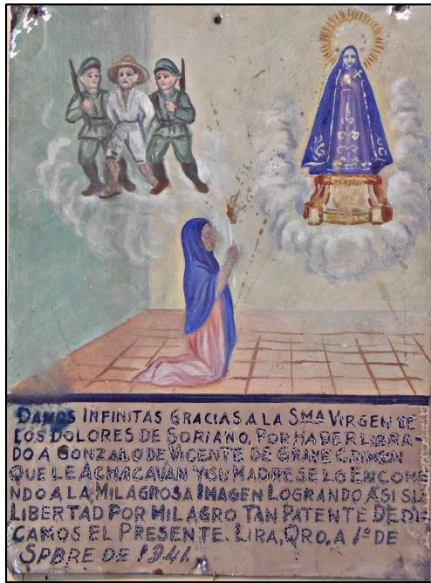 DAMOS INFINITAS GRACIAS A LA SMA VIRGEN DE
LOS DOLORES DE SORIANO, POR HABER LIBRA-
DO A GONZALO DE VICENTE DE GRAVE CRIMEN
QUE LE ACHACAVAN Y SU MADRE SE LO ENCOME
NDO A LA MILAGROSA IMAGEN LOGRANDO ASI SU
LIBERTAD POR MILAGRO TAN PATENTE DEDI
CAMOS EL PRESENTE. LIRA, QRO, A 1º DE
SPBRE DE 1941.